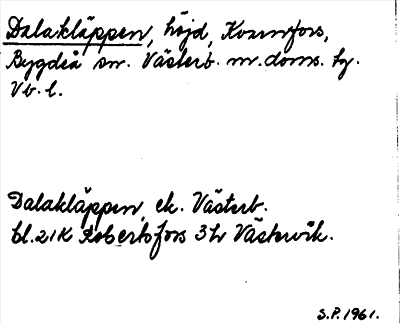 Dalakläppen, höjd, Kvarnfors,
Bygdeå sn. Västerb. n:a doms. tg.
Vb. l.
Dalakläppen, ek. Västerb.
bl. 21K Robertsfors 3h Västervik.
S.P. 1961.